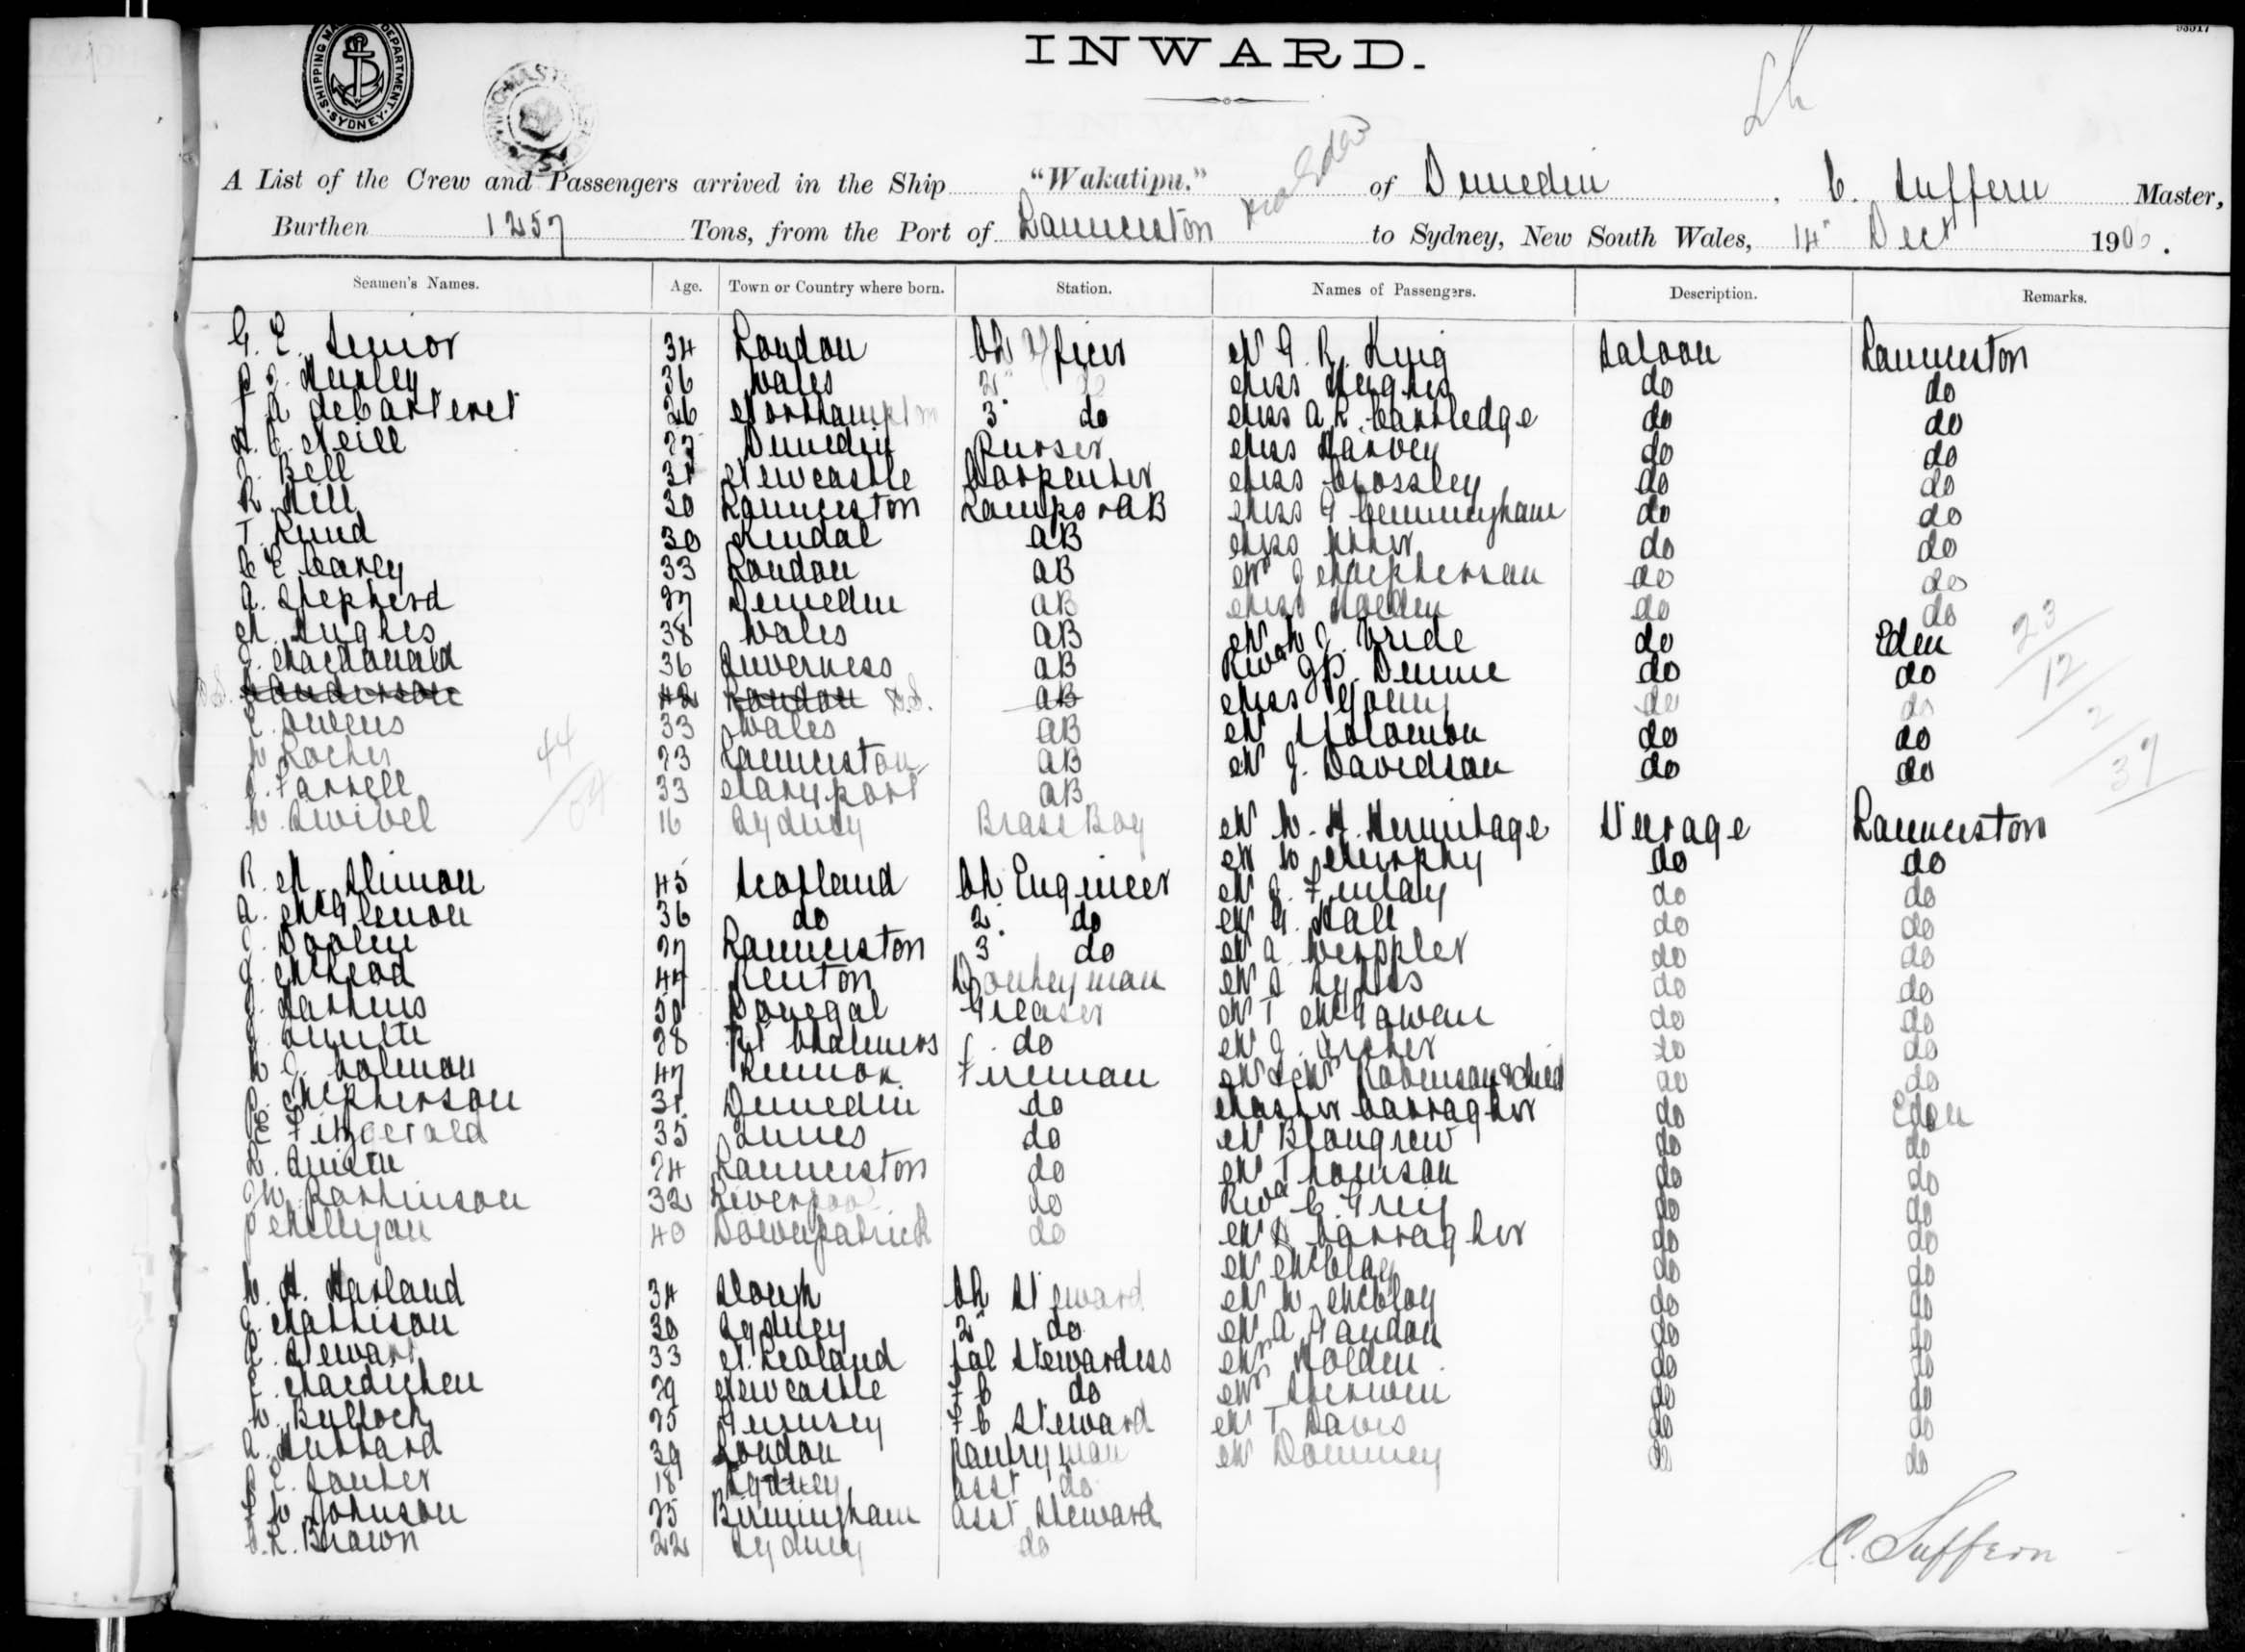 INWARD.
SHIPPING MA DEPARTMENT SYDNEY
A List of the Crew and Passengers arrived in the Ship "Wakatipu." of Dunedin, C. Suffern Master,
Burthen 1257 Tons, from the Port of Launceston via Eden to Sydney, New South Wales, 14" Dect 1900.
Seamen's Names. Age. Town or Country where born. Station. Names of Passengers. Description. Remarks.
G. E. Senior 34 London Ch Officer Mr G. R. King Saloon Launceston
Huxley 36 Wales 2" do Miss Hughes do do
A deCarteret 26 Northampton 3" do Miss A R. Cartledge do do
Neill Dunedin Purser Miss Harvey do do
J. Bell 31 Newcastle Carpenter Miss Crossley do do
R. Hill 30 Launceston Lamps & AB Miss G Cunningham do do
T. Rund 30 Kendal AB Miss do do
C E Carey 33 London AB J Macpherson do do
A. Shepherd 27 Dunedin AB Miss Holden do do
M. Hughes 38 Wales AB Mr W J. Bride do Eden
J. Macdonald 36 Inverness AB Revd J P. Dunne do do
Sanderson 42 London D.S. AB Miss Young do do
E. Owens 33 Wales AB Mr Solomon do do
W Rocher 23 Launceston AB Mr J. Davidson do do
J. Farrell 33 Maryport AB
W. Swivel 16 Sydney Brass Boy Mr W. H. Hermitage Steerage Launceston
Mr W Murphy do do
R. M Slimon 45 Scotland Ch. Engineer Mr J. Finlay do do
A. McGlenon 36 do 2" do Mr G. Hall do do
J. Doolin 27 Launceston 3 do Mr A. Weppler do do
J. McHead 44 Renton Donkeyman Mr J Sykes do do
J. Larkins 50 Donegal Greaser Mr T McGowan do do
J. Smith 28 Pt Chalmers do Mr J. Archer do do
W J. Colman 47 Fireman Mr & Mrs Robinson & Child do do
P. McPherson 31 Dunedin do Master Carragher do Eden
E Fitzgerald 35 Ennis do Mr Blomgrew do do
R. Quinn 24 Launceston do Mr Thomson do do
J W. Parkinson 32 Liverpool do Revd C. Greig do do
P Milligan 40 Downpatrick do Mr D Carragher do do
Mr McClay do do
W. H. Harland 34 Slough Ch Steward Mr W. McCloy do do
G. Mathison 30 Sydney 2" do Mr A. Gaudon do do
E. Stewart 33 N. Zealand Sal Stewardess Mrs Holden do do
E. Macdichen 29 Newcastle F C do Mrs Sherwin do do
W. Bullock 25 Guernsey F C Steward Mr T Davis do do
A. Hubbard 39 London Pantryman Mr Downey do do
P E. Souter 18 Sydney Asst do
F W. Johnson 25 Birmingham Asst Steward
C. R. Brown 22 Sydney do
44
23
12
2
37
C. Suffern